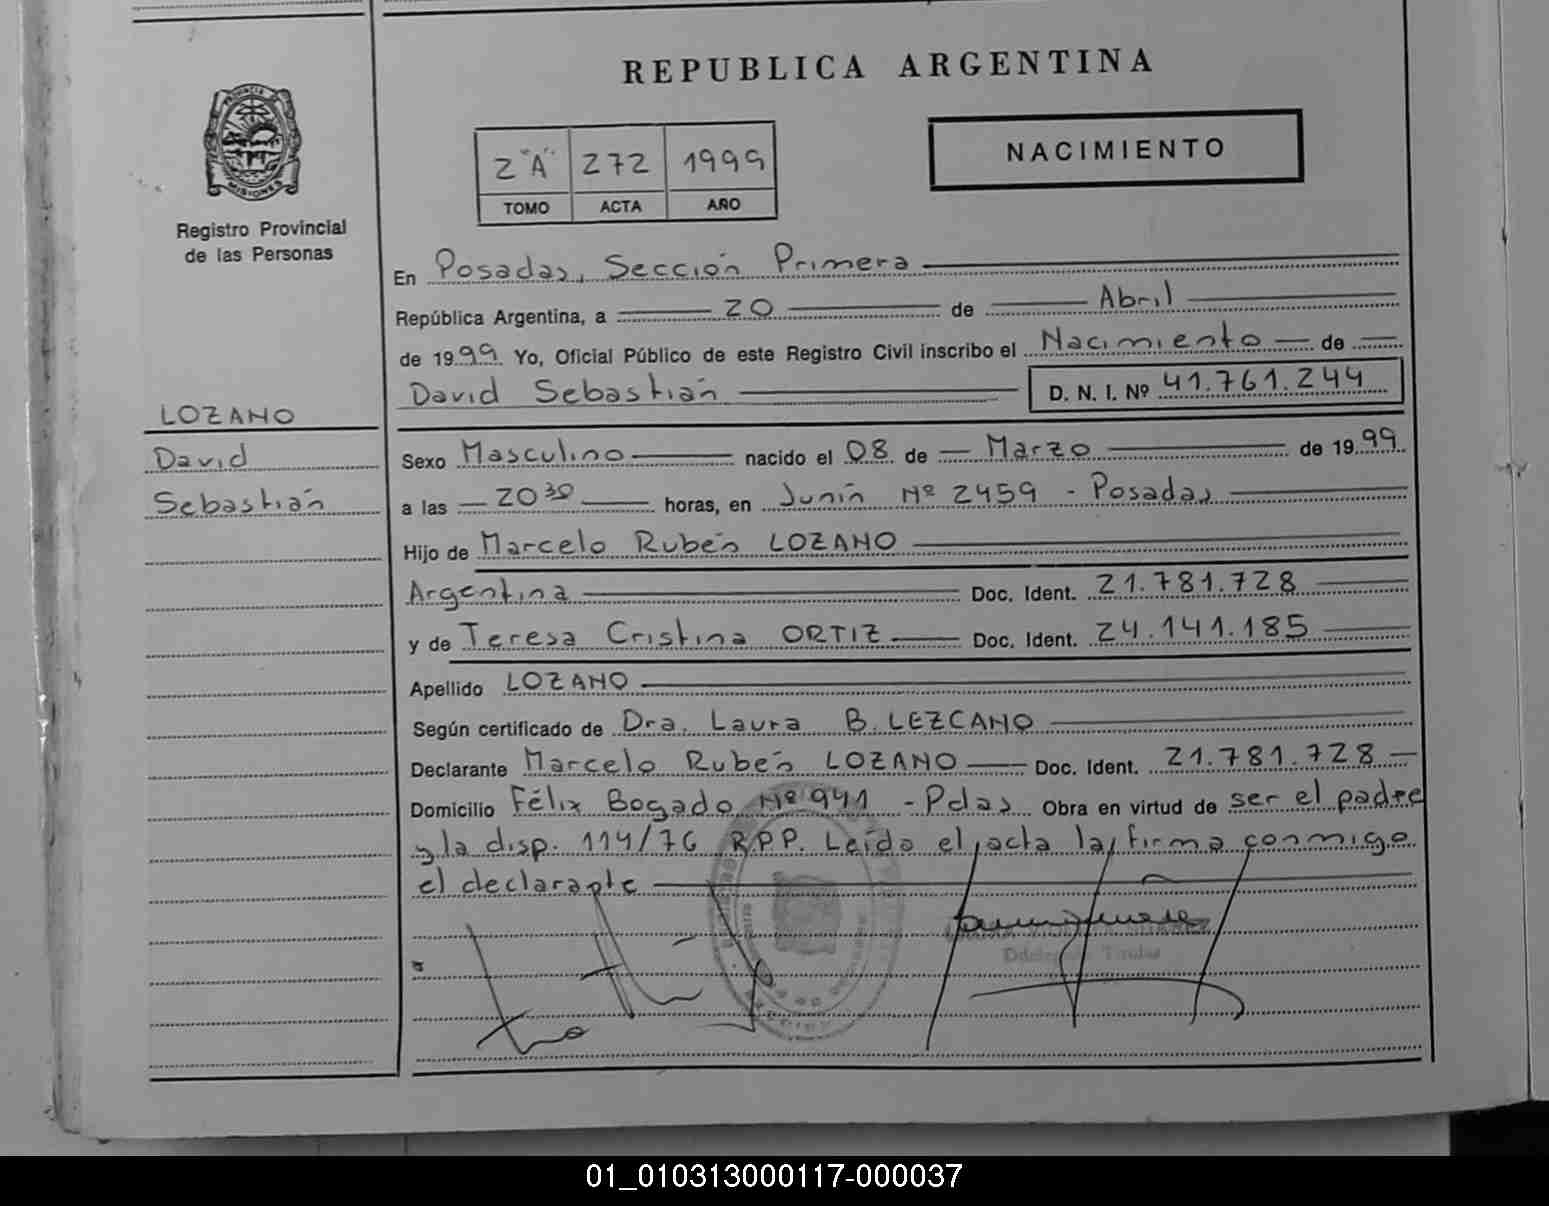 REPUBLICA ARGENTINA
PROVINCIA DE
MISIONES
Registro Provincial
de las Personas
2 "A" 272 1999
TOMO ACTA AÑO
NACIMIENTO
En Posadas, Sección Primera
República Argentina, a 20 de Abril
de 1999 Yo, Oficial Público de este Registro Civil inscribo el Nacimiento de
David Sebastián D. N. I. Nº 41.761.244
LOZANO
David
Sebastián
Sexo Masculino nacido el 08 de Marzo de 1999
a las 20 30 horas, en Junín Nº 2459 - Posadas
Hijo de Marcelo Rubén LOZANO
Argentina Doc. Ident. 21.781.728
y de Teresa Cristina ORTIZ Doc. Ident. 24.141.185
Apellido LOZANO
Según certificado de Dra. Laura B. LEZCANO
Declarante Marcelo Rubén LOZANO Doc. Ident. 21.781.728
Domicilio Félix Bogado Nº 941 - Pdas Obra en virtud de ser el padre
y la disp. 114/76 R.P.P. Leída el acta la firma conmigo
el declarante
Titular
01_010313000117-000037